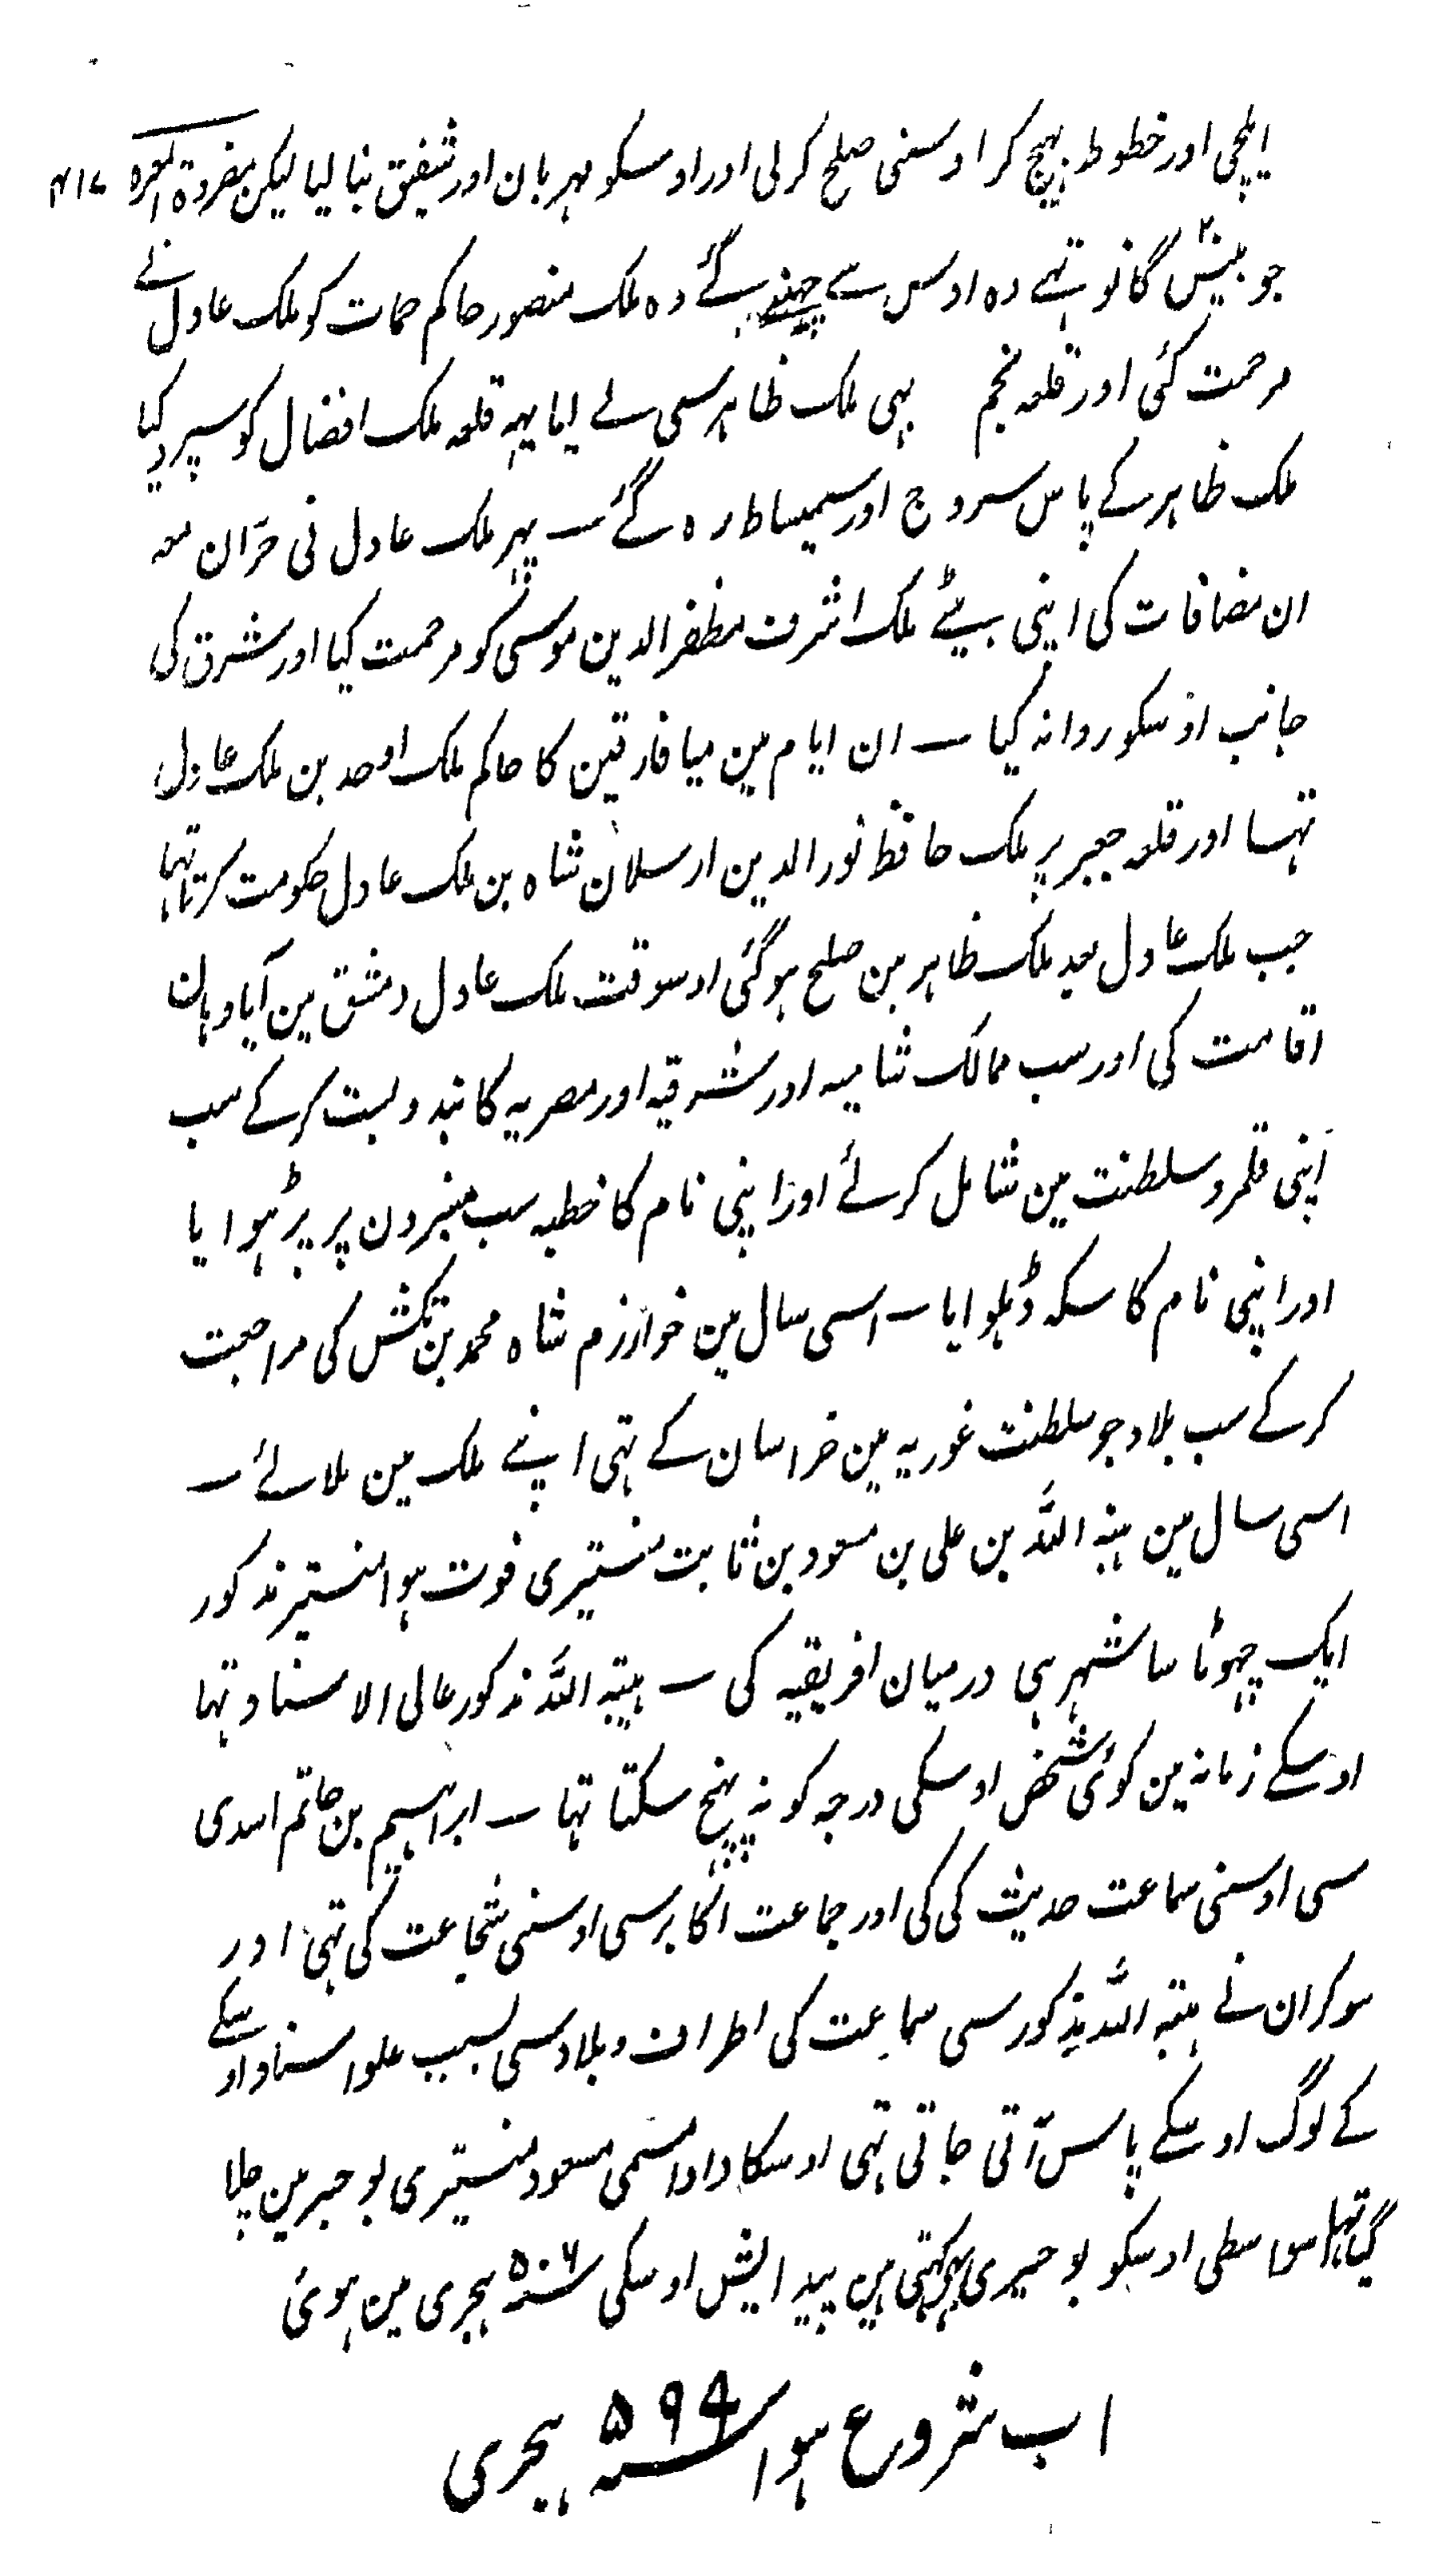 ایلچی اور خطوط بہیج کر اوسنی صلح کرلی اور اوسکو مہربان اور شفیق بنا لیا لیکن مفردۃ المعرہ ۴۱۷
جو بیس گانو تہے وہ اوس سے چہینے گئے وہ ملک منصور حاکم حمات کو ملک عادل نے
مرحمت کئی اور قلعہ نجم بہی ملک ظاہر سی لے لیا یہہ قلعہ ملک افضال کو سپرد کیا
ملک ظاہر کے پاس سروج اور سمیساط رہ گئے ۔ پہر ملک عادل نی حرّان معہ
ان مضافات کی اپنی بیٹے ملک اشرف مظفر الدین موسی کو مرحمت کیا اور شرق کی
جانب اوسکو روانہ کیا ۔ ان ایام مین میافارقین کا حاکم ملک اوحد بن ملک عادل
تہا اور قلعہ جعبر پر ملک حافظ نور الدین ارسلان شاہ بن ملک عادل حکومت کرتا تہا
جب ملک عادل بعد ملک ظاہر مین صلح ہو گئی اوسوقت ملک عادل دمشق مین آیا وہان
اقامت کی اور سب ممالک شامیہ اور شرقیہ اور مصریہ کا بندوبست کر کے سب
اپنی قلمرو سلطنت مین شامل کرلئے اور اپنی نام کا خطبہ سب منبرون پر پڑہوایا
اور اپنی نام کا سکہ ڈہلوایا ۔ اسی سال مین خوارزم شاہ محمد بن تکش کی مراجعت
کر کے سب بلاد جو سلطنت غوریہ مین خراسان کے تہی اپنے ملک مین ملا لئے ۔
اسی سال مین ہبتہ اللہ بن علی بن مسعود بن ثابت منستیری فوت ہوا منستیر مذکور
ایک چہوٹا سا شہر ہی درمیان افریقیہ کی ۔ ہبتہ اللہ مذکور عالی الاسناد تہا
اوسکے زمانہ مین کوئی شخص اوسکی درجہ کو نہ پہنچ سکتا تہا ۔ ابراہیم بن حاتم اسدی
سی اوسنی سماعت حدیث کی کی اور جماعت اکابر سی اوسنی شجاعت کی تہی اور
سوکران نے ہبتہ اللہ مذکور سی سماعت کی اطراف و بلاد سی بسبب علو اسناد اوسکے
کے لوگ اوسکے پاس آتی جاتی تہی اوسکا دادا مسمی مسعود منستیری بوحیر مین چلا
گیا تہا اسواسطی اوسکو بوحیری بہی کہتی ہین پیدایش اوسکی سنہ ۵۰۶ ہجری مین ہوئی
اب شروع ہوا سنہ ۵۹۹ ہجری